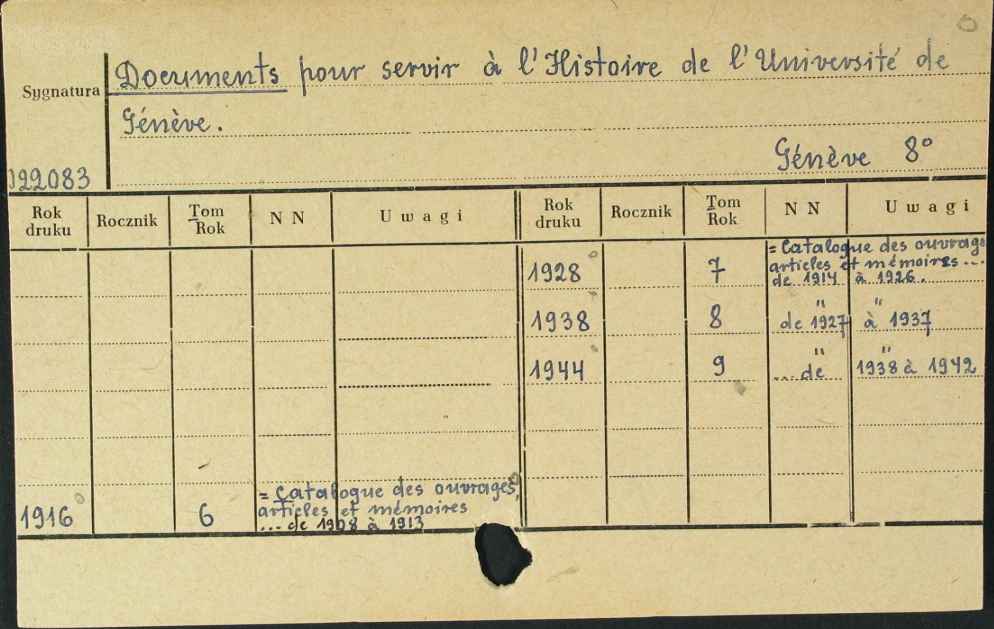 Documents pour servir à l'Histoire de l'Université de
Sygnatura
Génève.
Génève 8°
922083
Rok druku Rocznik Tom Rok N N Uwagi Rok druku Rocznik Tom Rok N N Uwagi
1928 7 = Catalogue des ouvrag
articles et mémoires ...
de 1914 à 1926.
1938 8 de 1927 " à " 1937
1944 9 ... de " 1938 " à 1942
1916 6 = Catalogue des ouvrages,
articles et mémoires
... de 1908 à 1913